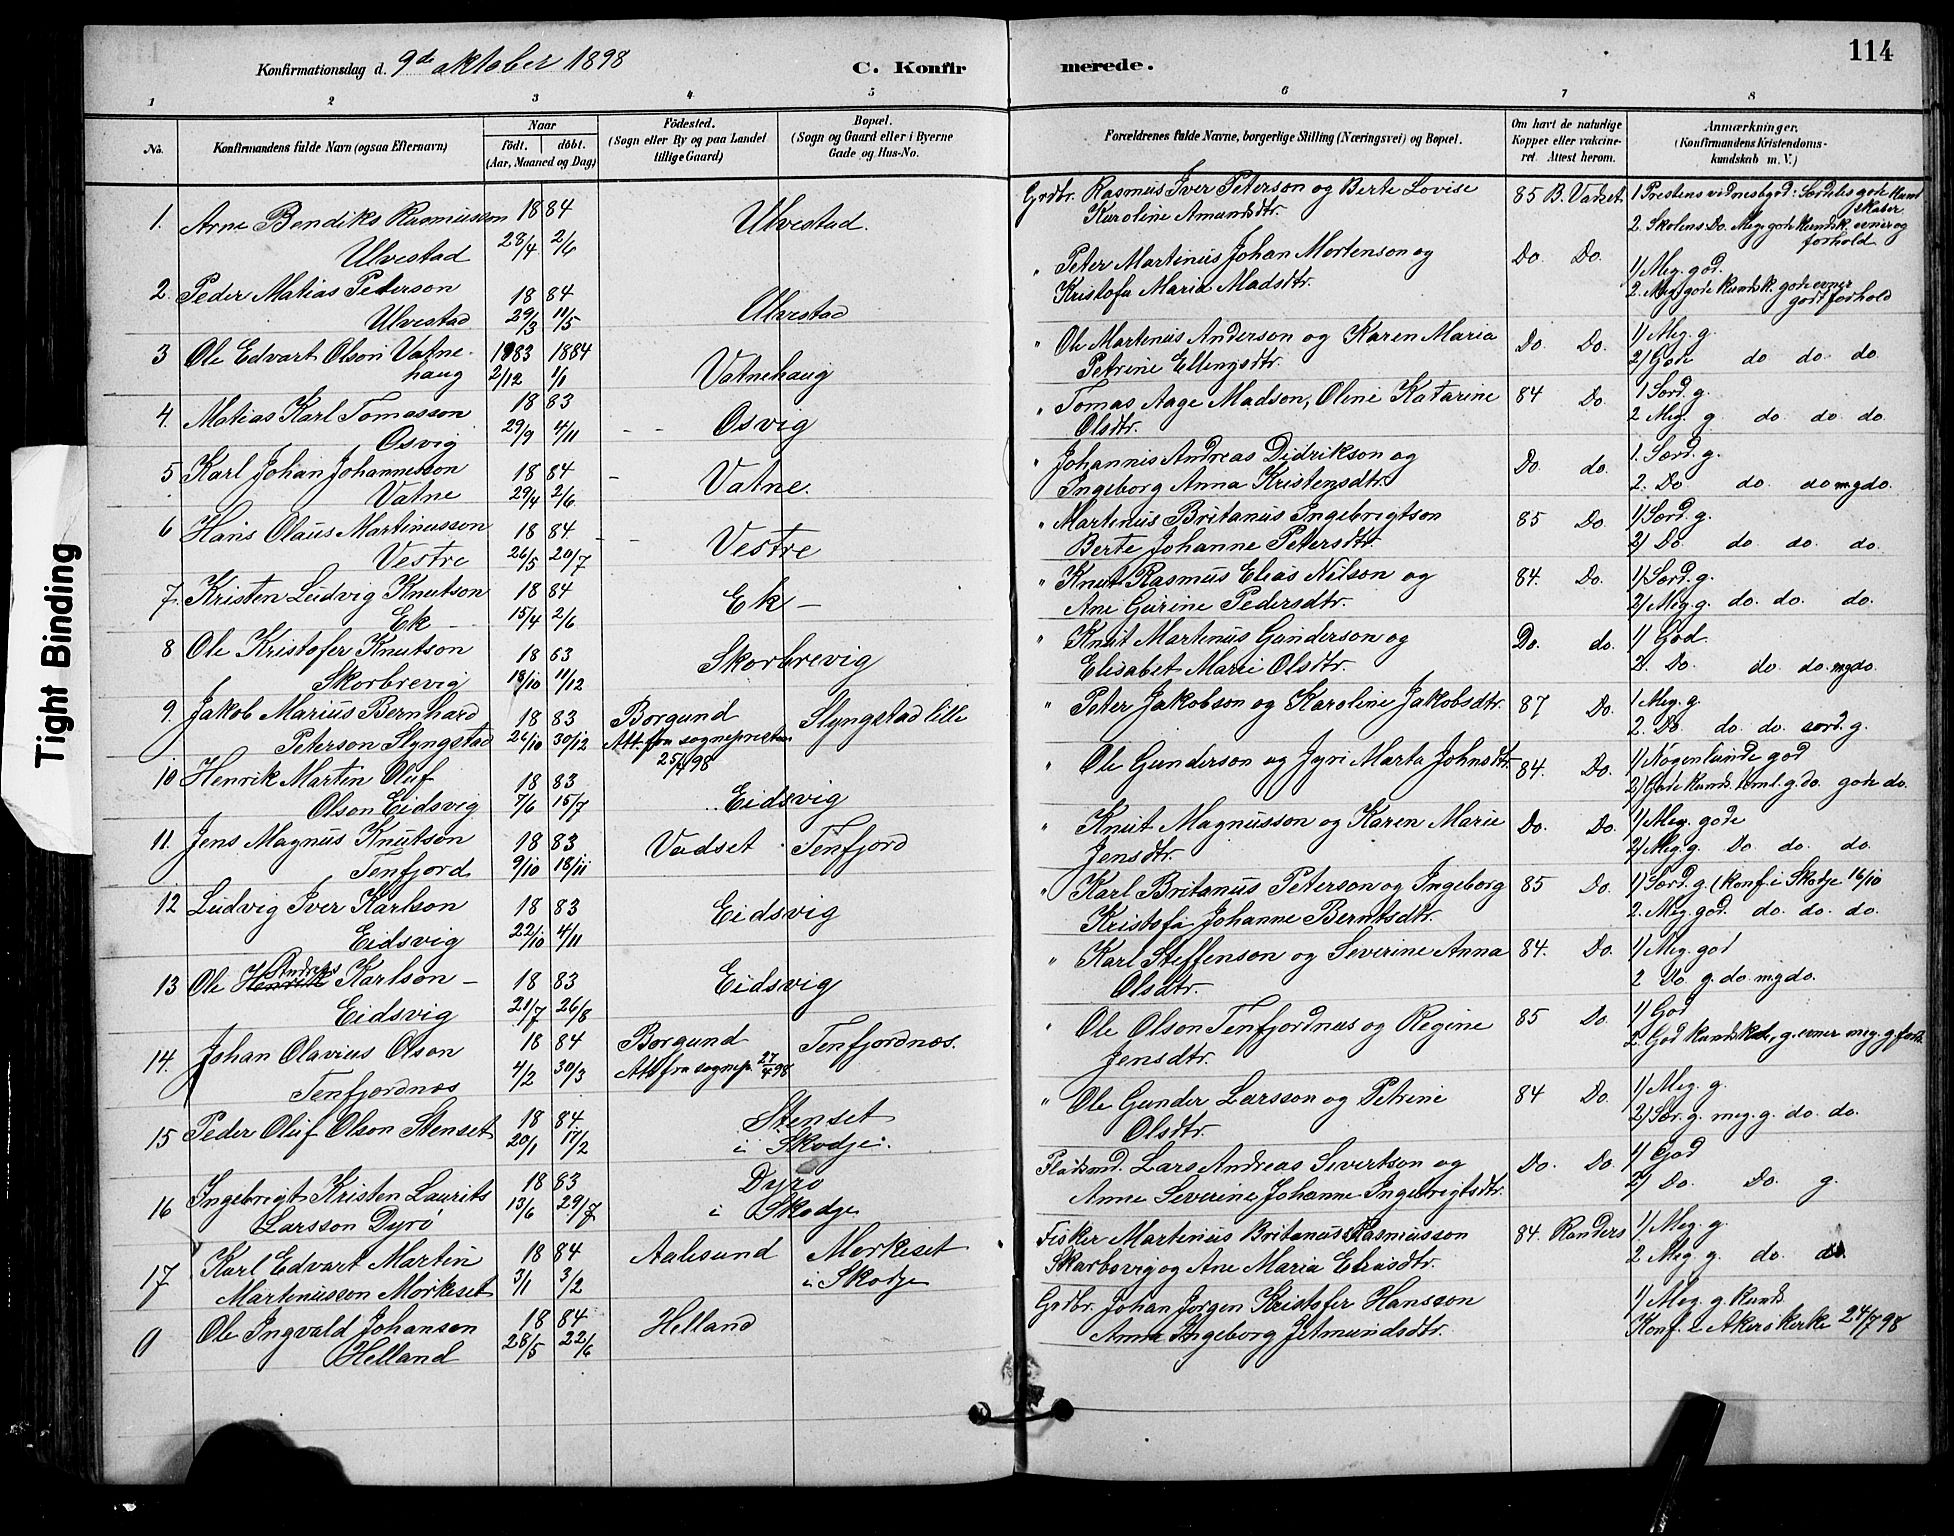 Konfirmationsdag d. 9de oktober 1898
C. Konfir merede.
114
1 2 3 4 5 6 7 8
No.
Konfirmandens fulde Navn (ogsaa Efternavn)
Naar
født. døbt.
(Aar, Maaned og Dag)
Fødested.
(Sogn eller By og paa Landet
tillige Gaard)
Bopæl.
(Sogn og Gaard eller i Byerne
Gade og Hus-No.
Forældrenes fulde Navne, borgerlige Stilling (Næringsvei) og Bopæl.
Om havt de naturlige
Kopper eller vakcine-
ret. Attest herom.
Anmærkninger.
(Konfirmandens Kristendoms-
kundskab m. V.)
1. Arne Bendiks Rasmusson 18 84 Ulvestad.
Ulvestad 28/4 2/6
Grdbr. Rasmus Iver Peterson og Berte Lovise 85 B. Vadset.
Karoline Amundsdtr.
1 Prestens vidnesbyrd: Særdeles gode kund
skaber
2. Skolens Do. Meg. gode kundsk. evner og
forhold
2. Peder Matias Peterson 18 84 Ulvestad
Ulvestad 29/3 11/5
" Peter Martinus Johan Mortenson og Do Do.
Kristofa Maria Madsdtr.
1/ Meg. god.
2. Meg. gode kundsk. gode evner
godt forhold
3 Ole Edvart Olson Vatne- 1883 1884 Vatnehaug
haug 2/12 1/1
" Ole Martenus Anderson og Karen Maria Do. Do. 1/ Meg. g.
Petrine Ellingsdtr. 2/ Gode do do. do
4. Matias Karl Tomasson 18 83 Osvig
Osvig 29/9 4/11
" Tomas Aage Madson, Oline Katarine 84 Do. 1 Særd. g.
Olsdtr. 2 Meg. g. do do do
5 Karl Johan Johannesson 18 84 Vatne.
Vatne 29/4 2/6
" Johannis Andreas Didrikson og Do. do. 1. Særd. g.
Ingeborg Anna Kristensdtr. 2. Do do. do mg do.
6 Hans Olaus Martinusson 18 84 Vestre
Vestre 26/5 20/7
" Martinus Britanus Ingebrigtson 85 Do. 1/ Særd. g.
Berte Johanne Petersdtr. 2/ Do. do do. do.
7. Kristen Ludvig Knutson 18 84 Ek -
Ek - 15/4 2/6
" Knut Rasmus Elias Nilson og 84. Do. 1/ Særd. g.
Ane Gurine Pedersdtr. 2/ Meg. g. do. do. do.
8 Ole Kristofer Knutson 18 83 Skorbrevig
Skorbrevig 18/10 11/12
" Knut Martenus Gunderson og Do. do. 1/ God.
Elisabet Marie Olsdtr. 2. Do do. do. mg do.
9. Jakob Marius Bernhard 18 83 Borgund Slyngstad lille
Peterson Slyngstad 26/10 30/12 Att. fra sognepresten
" Peter Jakobson og Karoline Jakobsdtr. 87 Do. 1 Meg. g.
2. Do. do do. særd. g.
10 Henrik Marten Oluf 18 83 Eidsvig
Olson Eidsvig 7/6 15/7
" Ole Gunderson og Jyri Marta Johnsdtr 84. Do. 1/ Nogenlunde god
2/ Gode kunds. teml. g. do. gode do.
11. Jens Magnus Knutson 18 83 Vadset Tenfjord
Tenfjord 9/10 18/11
" Knut Magnusson og Karen Marie Do. Do. 1/ Meg. gode
Jensdtr. 2/ Meg. g. Do do. do.
12 Ludvig Iver Karlson 18 83 Eidsvig
Eidsvig 22/10 4/11
" Karl Britanus Peterson og Ingeborg 85 Do. 1/ Særd. g. (konf. i Skodje 16/10
Kristofa Johanne Berntsdtr. 2. Meg. god. do. do. do.
13 Ole Henrik Andreas Karlson - 18 83 Eidsvig
Eidsvig 21/7 26/8
" Karl Steffenson og Severine Anna 84. Do. 1/ Meg. god
Olsdtr. 2 Do g. do. mg do.
14. Johan Olavius Olson 18 84 Borgund Tenfjordnæs.
Tenfjordnæs 4/2 30/3 Att. fra sognep. 27/4 98
" Ole Olson Tenfjordnæs og Regine 85 Do. 1/ God
Jensdtr. 2. God kundsk., g. evner meg. g. forh.
15 Peder Oluf Olson Stenset 18 84 Stenset
20/1 17/2 i Skodje.
" Ole Gunder Larsson og Petrine 84 Do. 1/ Meg. g.
Olsdtr. 2/ Sær. g. meg. g. do. do.
16 Ingebrigt Kristen Laurits 18 83 Dyrø
Larsson Dyrø 13/6 29/7 i Skodje
Pladsmd. Lars Andreas Sivertson og Do. Do. 1/ God
Anne Severine Johanne Ingebrigtsdtr. 2/ Do. Do. g.
17 Karl Edvart Martin 18 84 Aalesund Morkeset
Martinusson Morkeset 3/1 3/2 i Skodje
Fisker Martinus Britanus Rasmusson 84. Randers 1/ Meg. g.
Skarbøvig og Ane Maria Eliasdtr. 2 Meg g. do do.
0 Ole Ingvald Johansen 18 84 Helland
Helland 28/5 22/6
Grdbr. Johan Jørgen Kristofer Hansson 1/ Meg. g. kunds
Anna Ingeborg Jetmundsdtr. Konf. i Akerskirke 24/7 98
Tight Binding